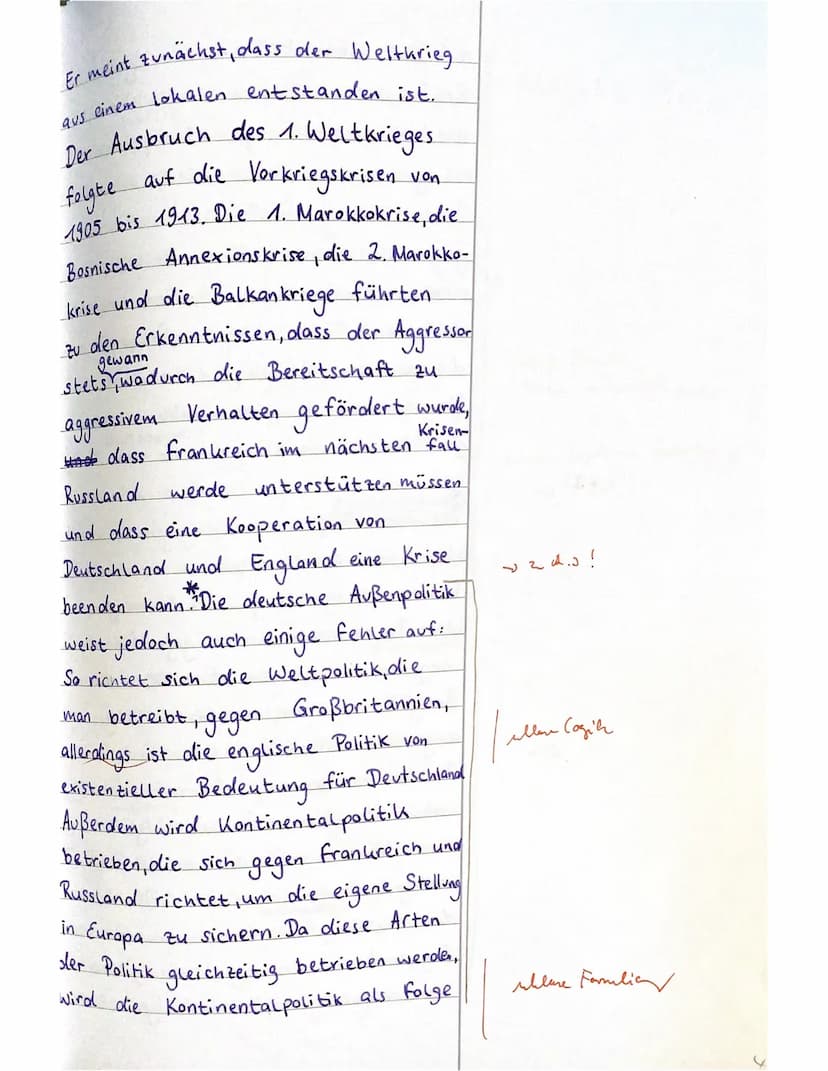 Er meint zunächst, dass der Weltkrieg
aus einem lokalen entstanden ist.
Der Ausbruch des 1. Weltkrieges
folgte auf die Vorkriegskrisen von
1905 bis 1913. Die 1. Marokkokrise, die
Bosnische Annexionskrise, die 2. Marokko-
krise und die Balkankriege führten
zu den Erkenntnissen, dass der Aggressor
gewann
stets, wodurch die Bereitschaft zu
aggressivem Verhalten gefördert wurde,
Krisen-
und dass Frankreich im nächsten fall
Russland werde unterstützen müssen
und dass eine Kooperation von
Deutschland und England eine Krise
beenden kann.* Die deutsche Außenpolitik
weist jedoch auch einige Fehler auf:
So richtet sich die Weltpolitik, die
man betreibt, gegen Großbritannien,
allerdings ist die englische Politik von
existentieller Bedeutung für Deutschland
Außerdem wird Kontinentalpolitik
betrieben, die sich gegen Frankreich und
Russland richtet, um die eigene Stellung
in Europa zu sichern. Da diese Arten
der Politik gleichzeitig betrieben werden,
wird die Kontinentalpolitik als Folge
4